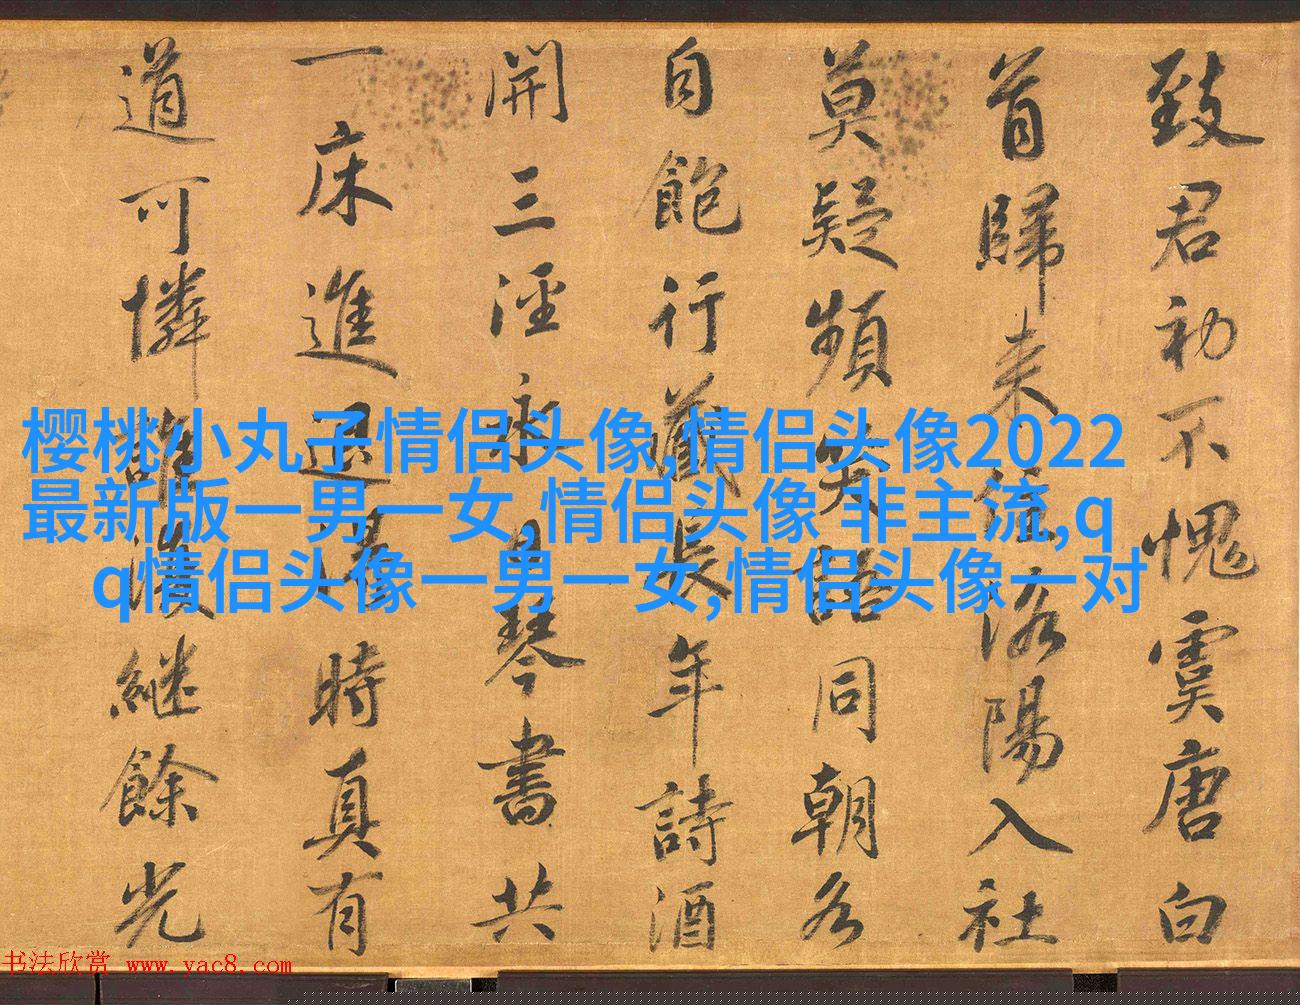 致君初不愧虞唐白
首歸来往洛陽入社
莫疑頻笑語同朝各
自飽行藏長年詩酒
開三涇永日琴書共
一床進退得時真有
道可憐誰継餘光
樱桃小丸子情侣头像,情侣头像2022
最新版一男一女,情侣头像 非主流,q
q情侣头像一男一女,情侣头像一对
书法欣赏 www.yac8.com